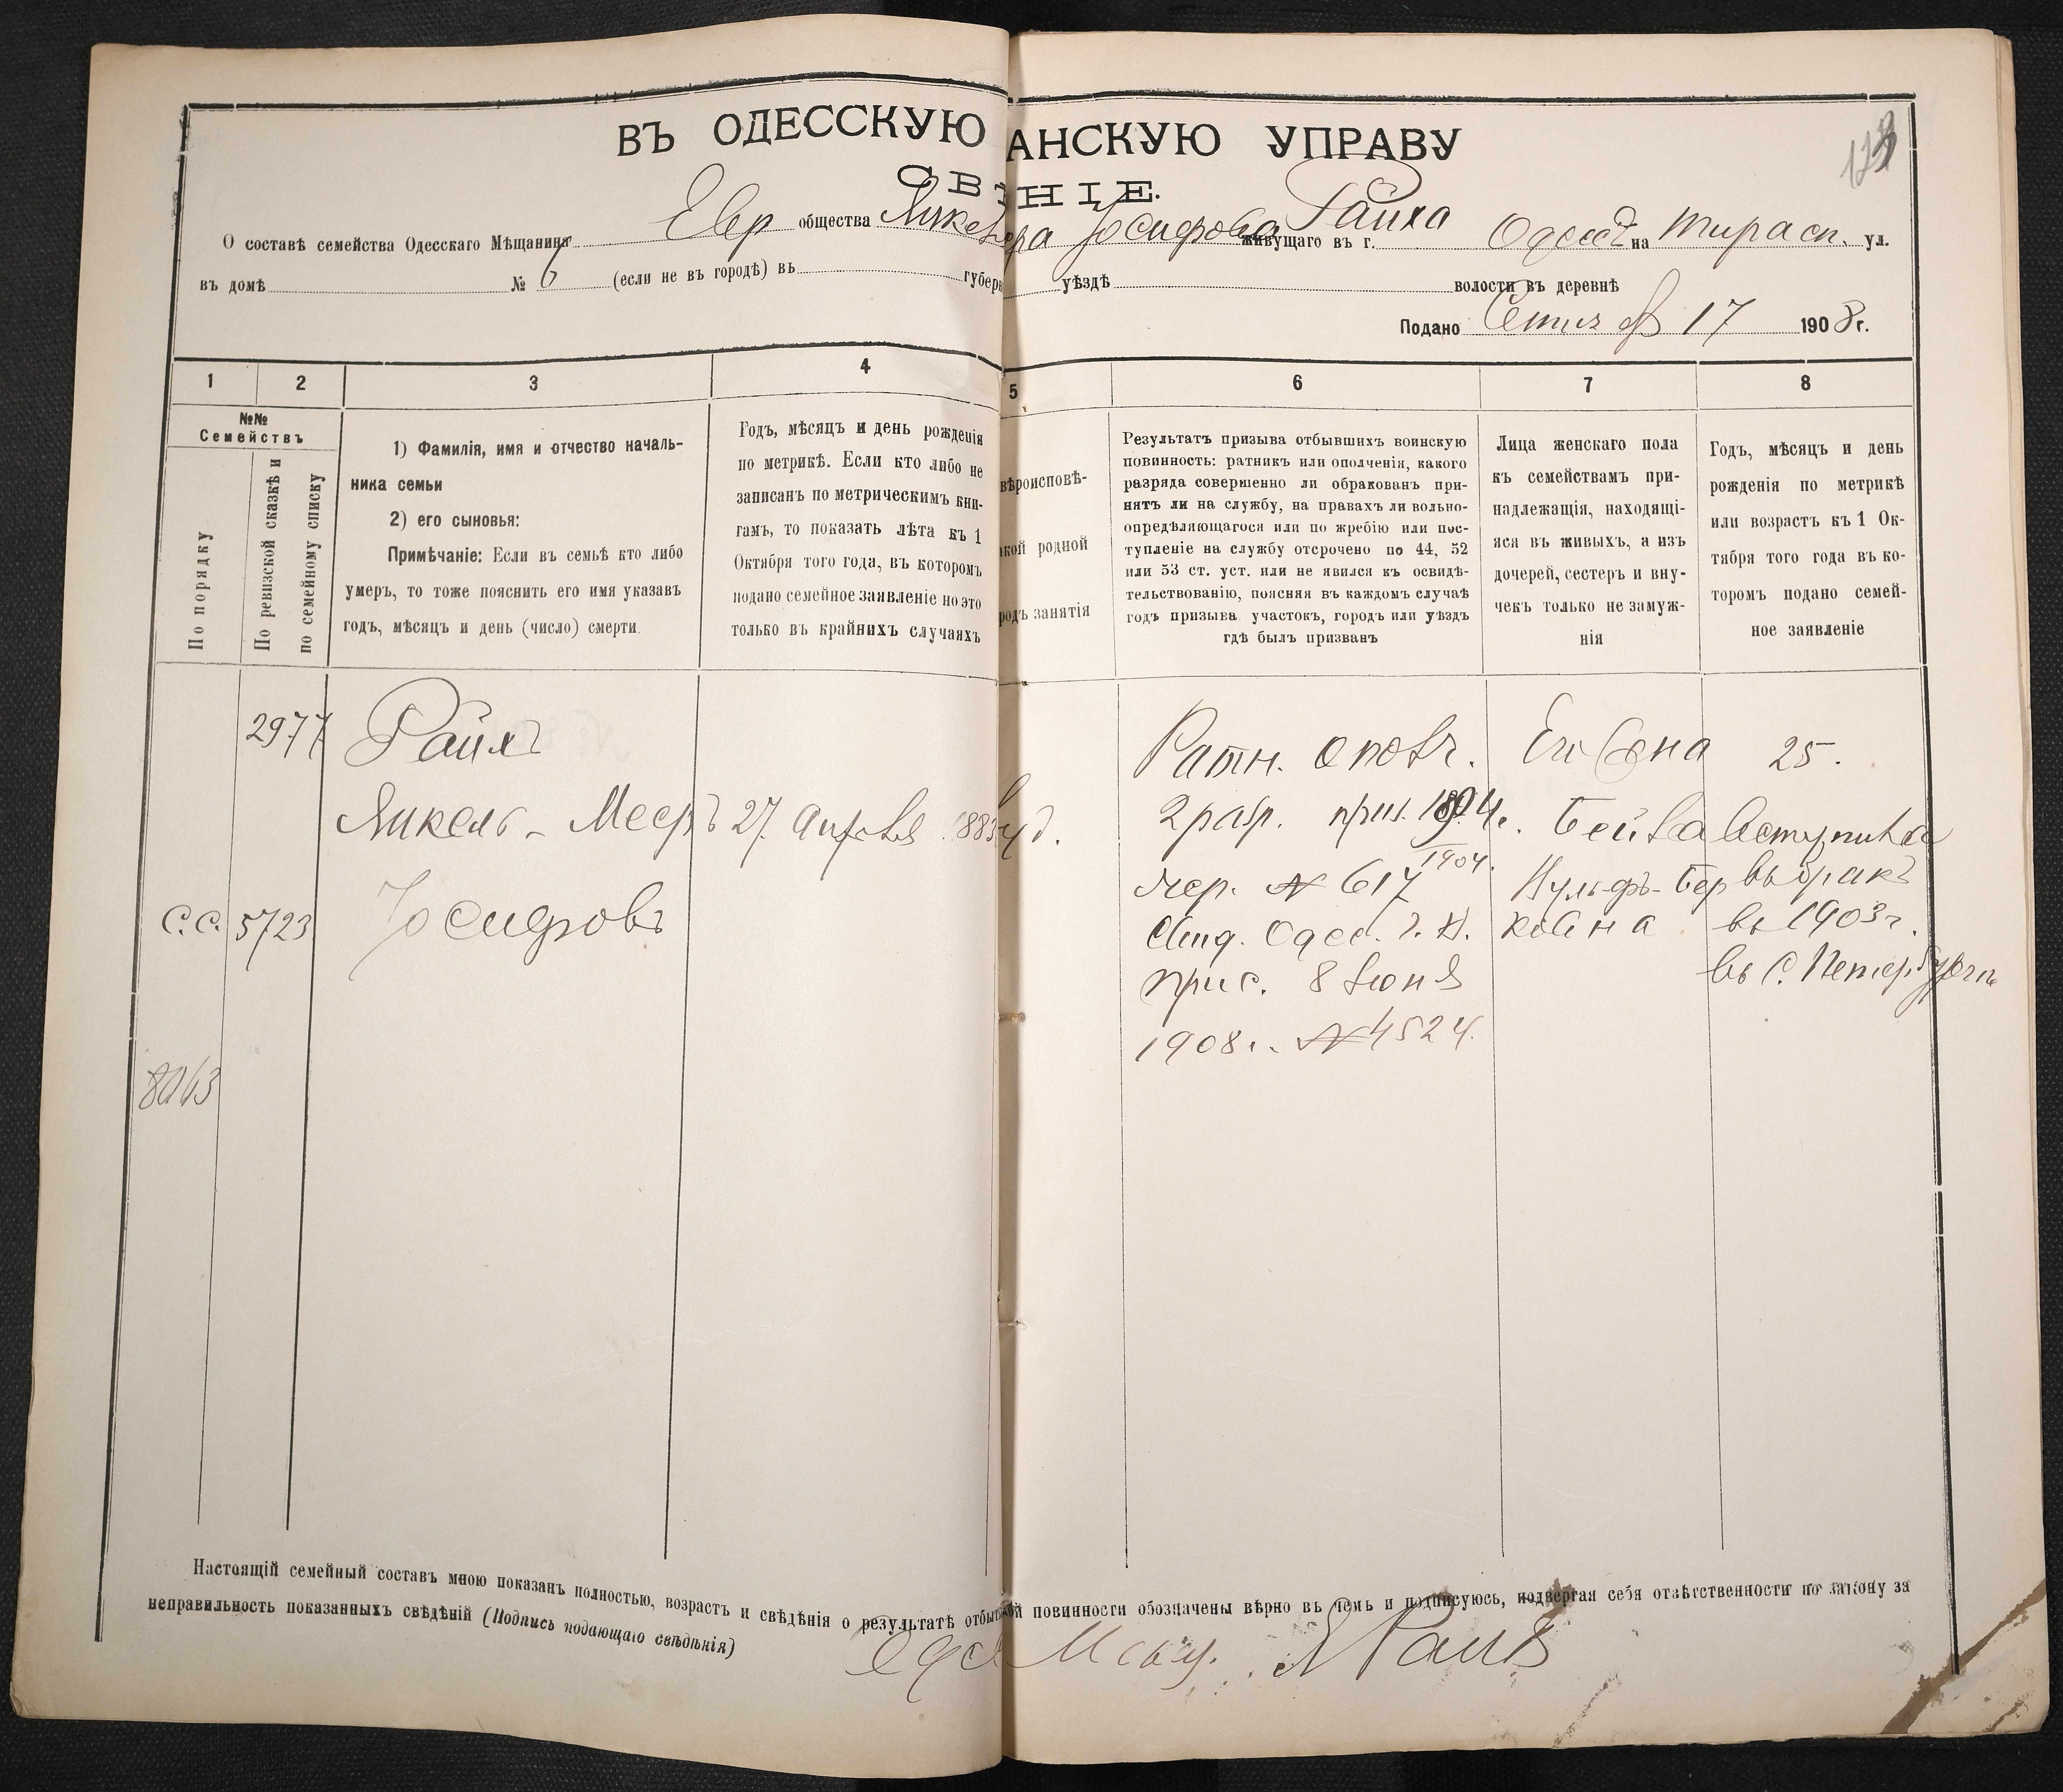 ВЪ ОДЕССКУЮ АНСКУЮ УПРАВУ
СВ НІЕ.
О составѣ семейства Одесскаго Мѣщанина Евр общества Іосифова Райха живущаго въ г. Одессѣ на Тирасп. ул.
въ домѣ № 6 (если не въ городѣ) въ губерн уѣздѣ волости въ деревнѣ
Подано 17 1908 г.
1 2 3 4 5 6 7 8
№№
Семействъ
По порядку
По ревизской сказкѣ и
по семейному списку
1) Фамилія, имя и отчество началь-
ника семьи
2) его сыновья:
Примѣчаніе: Если въ семьѣ кто либо
умеръ, то тоже пояснить его имя указавъ
годъ, мѣсяцъ и день (число) смерти.
Годъ, мѣсяцъ и день рожденія
по метрикѣ. Если кто либо не
записанъ по метрическимъ кни-
гамъ, то показать лѣта къ 1
Октября того года, въ которомъ
подано семейное заявленіе но это
только въ крайнихъ случаяхъ
вѣроисповѣ-
акой родной
родъ занятія
Результатъ призыва отбывшихъ воинскую
повинность: ратникъ или ополченія, какого
разряда совершенно ли обракованъ при-
нятъ ли на службу, на правахъ ли вольно-
опредѣляющагося или по жребію или пос-
тупленіе на службу отсрочено по 44, 52
или 53 ст. уст. или не явился къ освидѣ-
тельствованію, поясняя въ каждомъ случаѣ
годъ призыва участокъ, городъ или уѣздъ
гдѣ былъ призванъ
Лица женскаго пола
къ семействамъ при-
надлежащія, находящі-
яся въ живыхъ, а изъ
дочерей, сестеръ и вну-
чекъ только не замуж-
нія
Годъ, мѣсяцъ и день
рожденія по метрикѣ
или возрастъ къ 1 Ок-
тября того года въ ко-
торомъ подано семей-
ное заявленіе
2977
Райхъ
Янкель-Мееръ
Іосифовъ
С.С. 5723
8063
27 апрѣля 1883 іуд.
Ратн. ополч.
2 разр. приз. 1904 г.
1904.
жер. № 617
Одес. г. п.
прис. 8 Іюня
1908 г. № 4524.
Его жена
Бейла
Вульфъ-Бер
ковна
25.
Вступила
въ бракъ
въ 1903 г.
въ С. Петербургѣ
Настоящій семейный составъ мною показанъ полностью, возрастъ и свѣдѣнія о результатѣ отбыт ой повинности обозначены вѣрно въ чемъ и подписуюсь, подвергая себя отвѣтственности по закону за
неправильность показанныхъ свѣдѣній (Подпись подающаго свѣдѣнія)
Я Райх